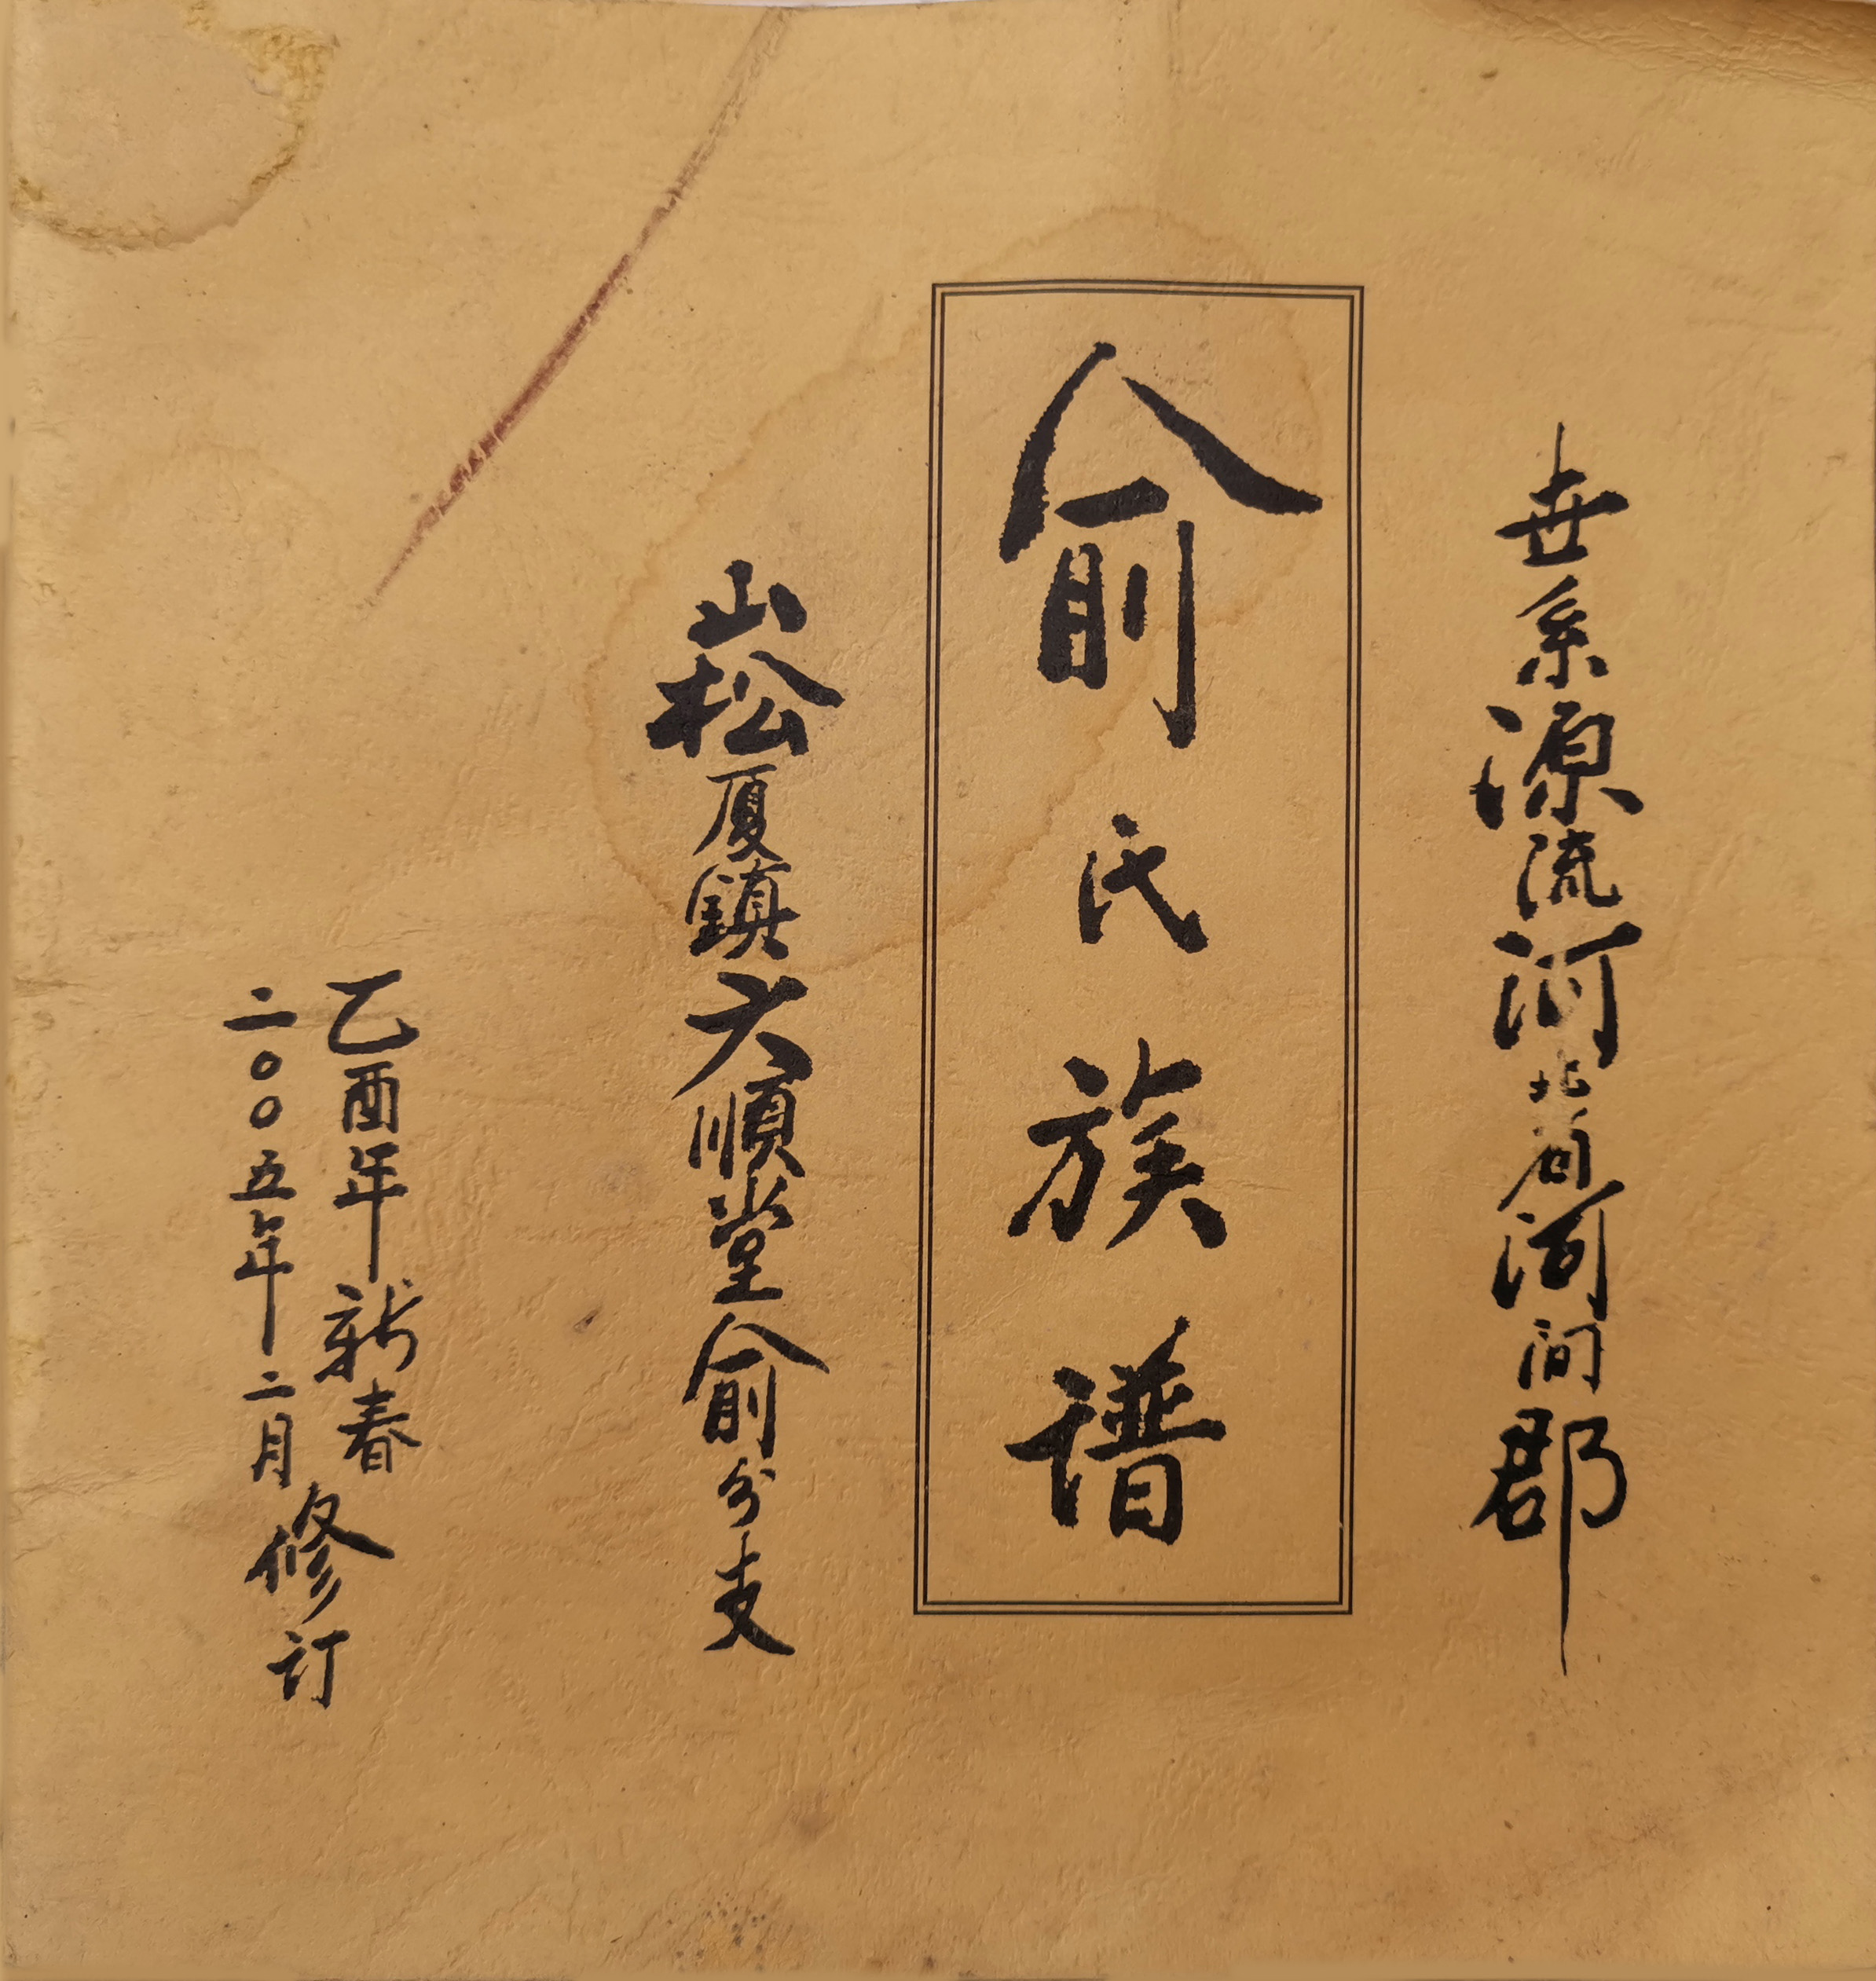 世系源流河北省河间郡
俞氏族谱
崧厦鎮大順堂俞分支
乙酉年新春
二〇〇五年二月
修订